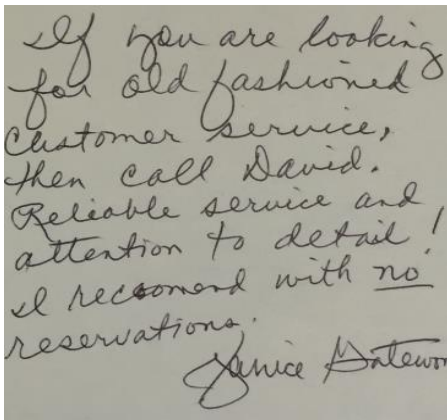 If you are looking
for old fashioned
customer service,
then call David.
Reliable service and
attention to detail!
I recoomend with no
reservations.
Janice Gatewo